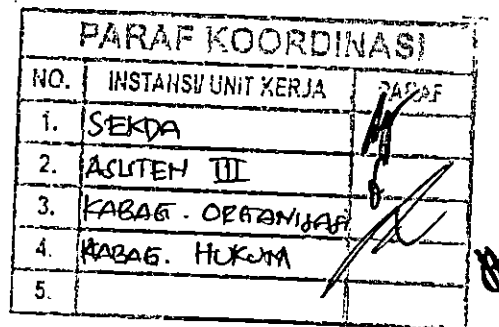 PARAF KOORDINASI
NO. INSTANSI/ UNIT KERJA PARAF
1. SEKDA
2. ASISTEN III
3. KABAG. ORGANISASI
4. KABAG. HUKUM
5.